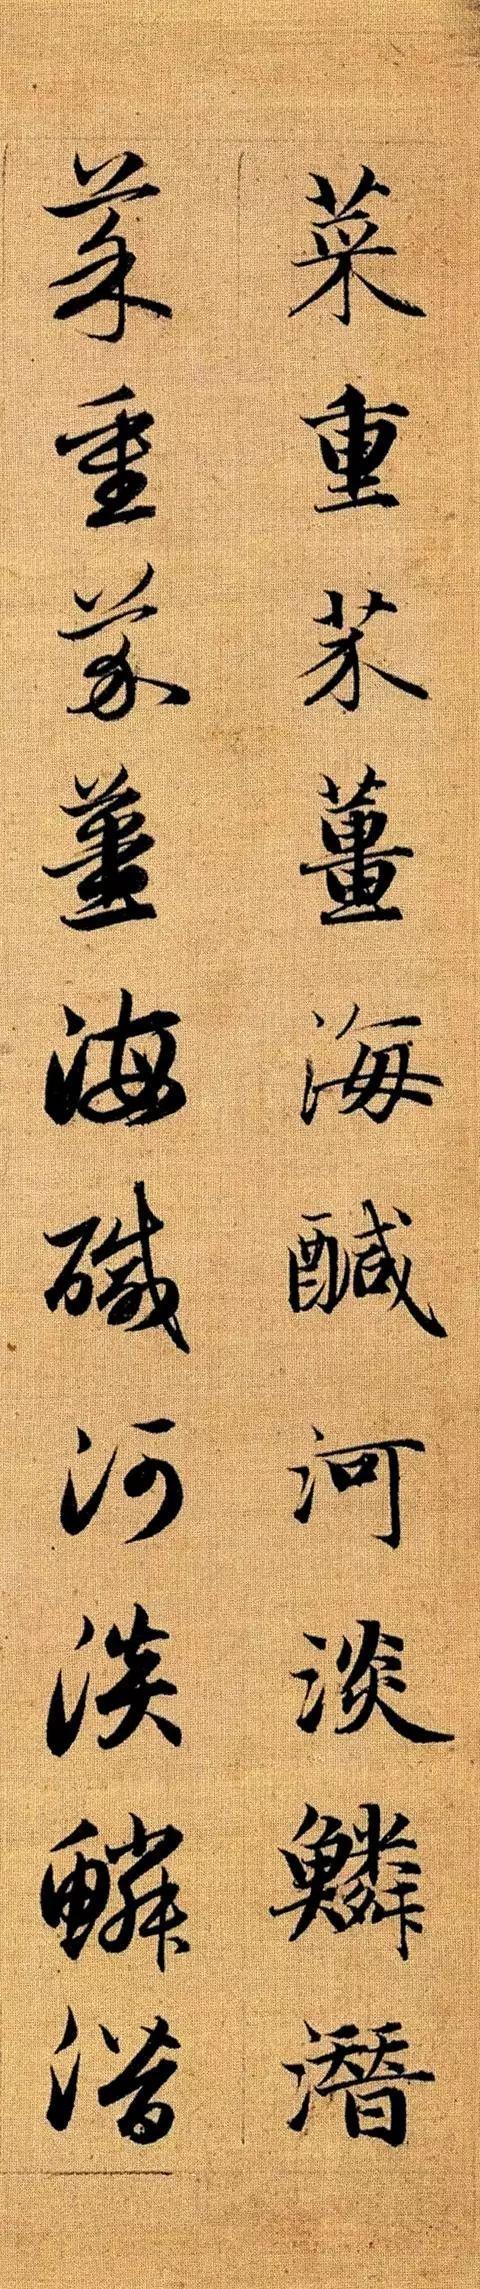 菜重芥薑海鹹河淡鱗潛
菜重芥薑海鹹河淡鱗潛